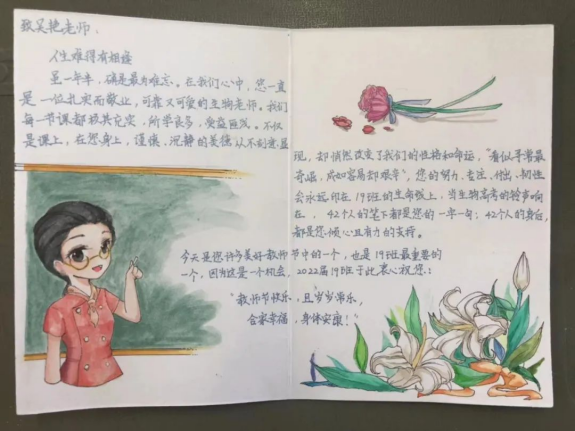 致吴艳老师：
人生难得有相逢
星一年半，确是最为难忘。在我们心中，您一直
是一位扎实而敬业，可靠又可爱的生物老师。我们
每一节课都极其充实，所学良多，受益匪浅。不仅
是课上，在您身上，谨慎、沉静的美德从不刻意显
现，却悄然改变了我们的性格和命运，"看似寻常最
奇崛，成如容易却艰辛"，您的努力、专注、付出、韧性
会永远印在19班的生命线上，当生物高考的铃声响
在，42个人的笔下都是您的一字一句；42个人的身后，
都是您倾心且有力的支持。
今天是您许多美好教师节中的一个，也是19班最重要的
一个，因为这是一个机会，2022届19班于此衷心祝您：
"教师节快乐，且岁岁常乐，
合家幸福，身体安康！"